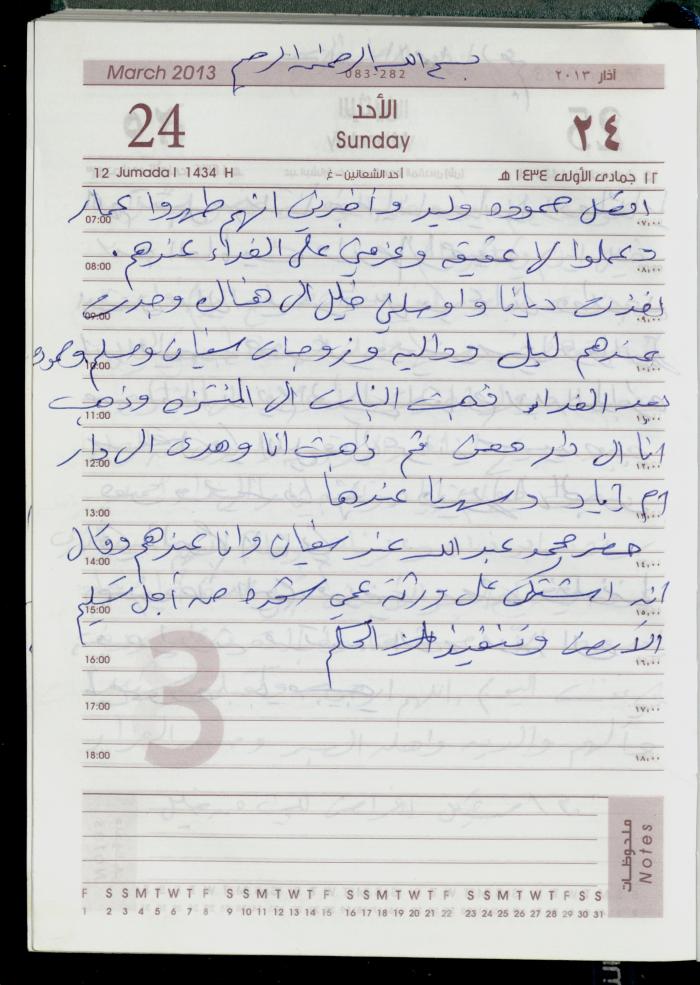 بسم الله الرحمن الرحيم
March 2013 083-282 آذار ٢٠١٣
24 الأحد ٢٤
Sunday
12 Jumada I 1434 H أحد الشعانين - غ ١٢ جمادى الأولى ١٤٣٤ هـ
اتصل حموده وليد وأخبرني انهم طهروا عمار
07:00 ٠٧:٠٠
وعملوا لا عقيقه وعزمني على الغداء عندهم.
08:00 ٠٨:٠٠
ديانا واوصلني خليل الى هناك وجدت
09:00 ٠٩:٠٠
عندهم ليلى وداليه وزوجات سفيان وسليم وحموده
10:00 ١٠:٠٠
بعد الغداء ذهبت البنات الى المنتزه وذهبت
11:00 ١١:٠٠
انا الى دار معن ثم ذهبت انا وهدى الى دار
12:00 ١٢:٠٠
ام اياد وسهرنا عندها
13:00 ١٣:٠٠
حضر محمد عبد الله عند سفيان وانا عندهم وقال
14:00 ١٤:٠٠
انه اشتكى على ورثة عمي من أجل تسليم
15:00 ١٥:٠٠
الأرض وتنفيذ الحكم
16:00 ١٦:٠٠
3
17:00 ١٧:٠٠
18:00 ١٨:٠٠
ملحوظات
Notes
F S S M T W T F S S M T W T F S S M T W T F S S M T W T F S S
1 2 3 4 5 6 7 8 9 10 11 12 13 14 15 16 17 18 19 20 21 22 23 24 25 26 27 28 29 30 31